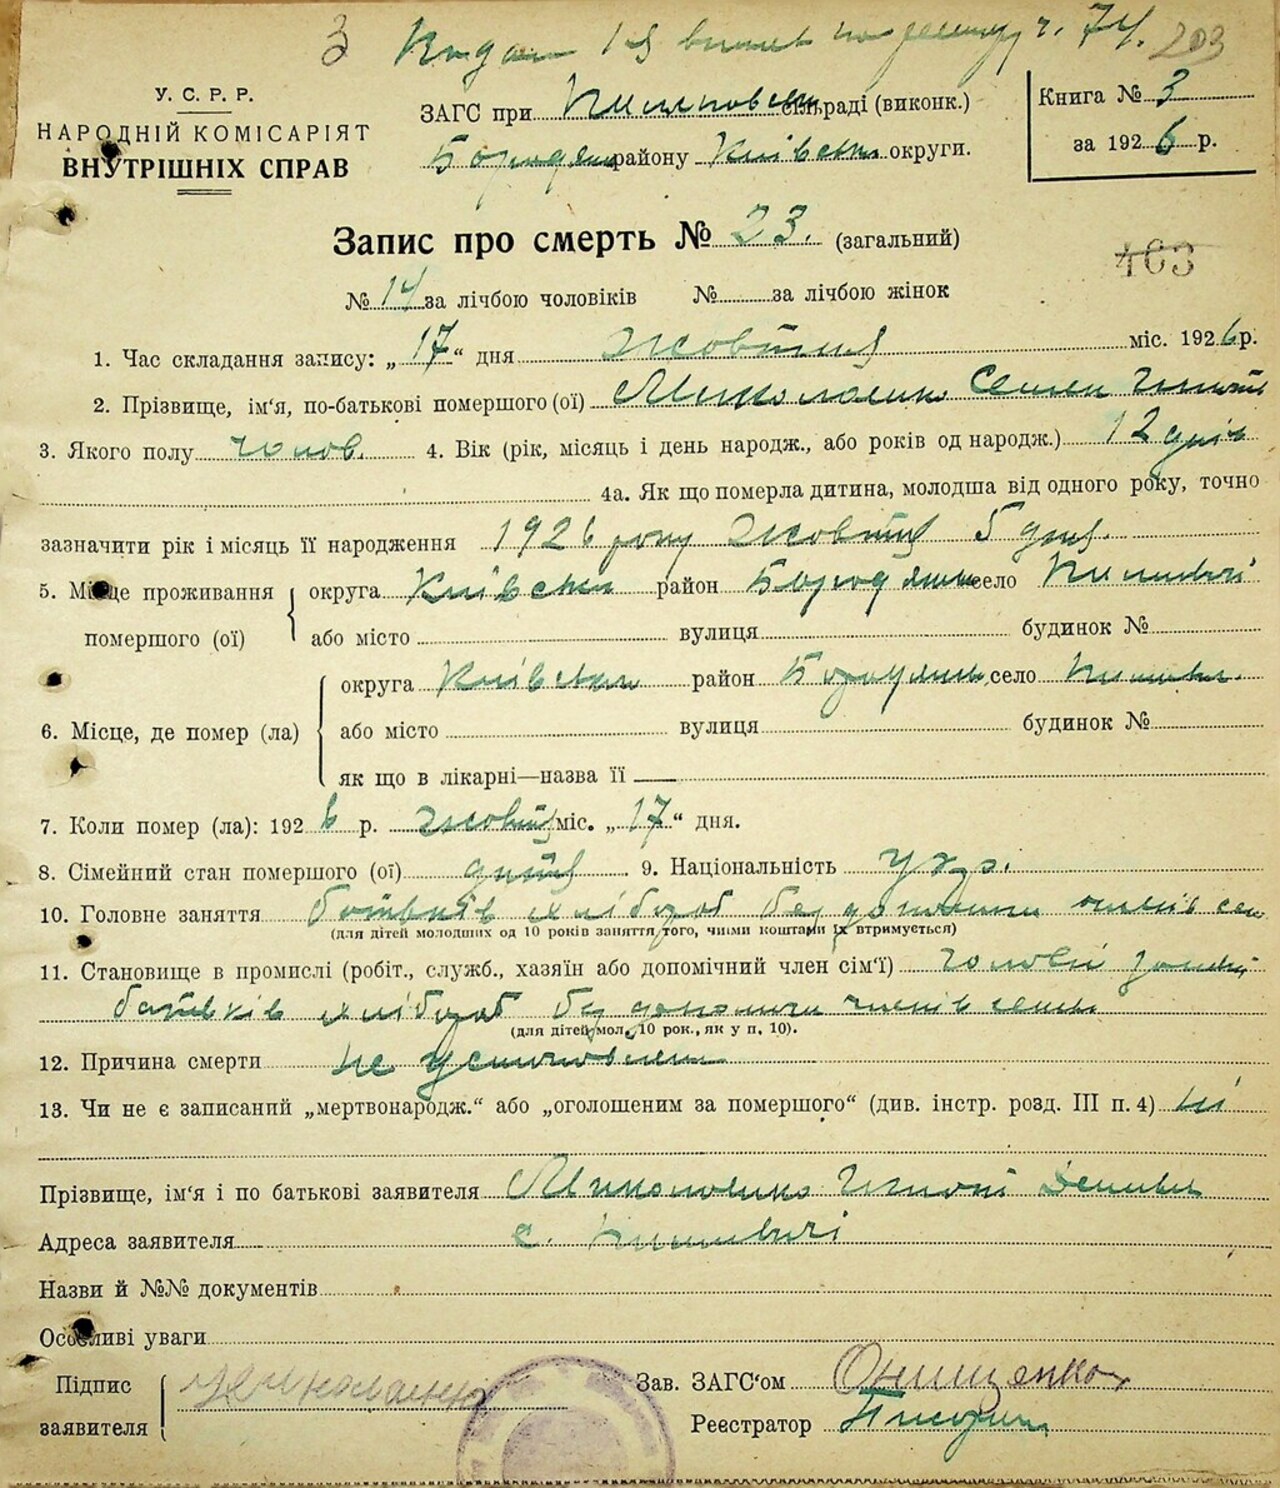 З Видан 1-й витяг по реєстру ч. 74. 203
У. С. Р. Р.
НАРОДНІЙ КОМІСАРІЯТ
ВНУТРІШНІХ СПРАВ
ЗАГС при сільраді (виконк.)
району Київськ округи.
Книга № 3
за 1926 р.
Запис про смерть № 23. (загальний)
403
№ 14 за лічбою чоловіків № за лічбою жінок
1. Час складання запису: „17“ дня Жовтня міс. 1926 р.
2. Прізвище, ім‘я, по-батькові помершого (ої) Миколаенко Семен Гнатів
3. Якого полу чолов. 4. Вік (рік, місяць і день народж., або років од народж.) 12 днів
4а. Як що померла дитина, молодша від одного року, точно
зазначити рік і місяць її народження 1926 року Жовтня 5 дня.
5. Місце проживання помершого (ої) округа Київськ район Бородянськ село
або місто вулиця будинок №
6. Місце, де помер (ла) округа Київська район Бородянськ село
або місто вулиця будинок №
як що в лікарні—назва її —
7. Коли помер (ла): 1926 р. Жовтня міс. „17“ дня.
8. Сімейний стан помершого (ої) дитя 9. Національність укр.
10. Головне заняття батьків хлібороб без допомоги членів сем
(для дітей молодших од 10 років заняття того, чиїми коштами їх втримується)
11. Становище в промислі (робіт., служб., хазяїн або допомічний член сім‘ї) голови
батьків хлібороб без допомоги членів семьи
(для дітей мол. 10 рок., як у п. 10).
12. Причина смерти не установлена
13. Чи не є записаний „мертвонародж.“ або „оголошеним за помершого“ (див. інстр. розд. III п. 4) ні
Прізвище, ім‘я і по батькові заявителя Миколаенко Гнат
Адреса заявителя с.
Назви й №№ документів
Особливі уваги
Підпис заявителя Миколаенко
Зав. ЗАГС‘ом Онищенко
Реєстратор